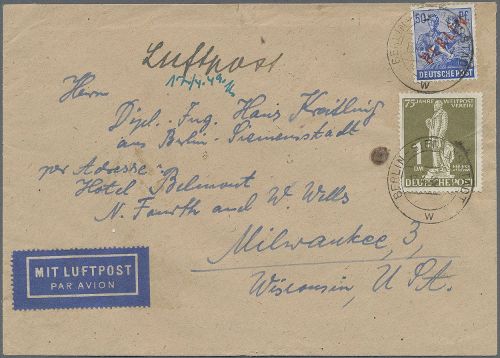 Luftpost
17/4.49.
Herrn
Dipl.-Ing. Hans
aus Berlin-Siemensstadt
per Adresse:
Hotel Belmont
N. Fourth and W. Wells
Milwaukee, 3,
Wisconsin, USA.
MIT LUFTPOST
PAR AVION
50 PF
BERLIN
DEUTSCHE POST
BERLIN
W
75 JAHRE WELTPOST
VEREIN
1
DM
DEUTSCHE POST
BERLIN
W